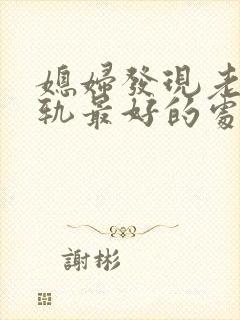 媳婦發現老
軌最好的處
謝彬